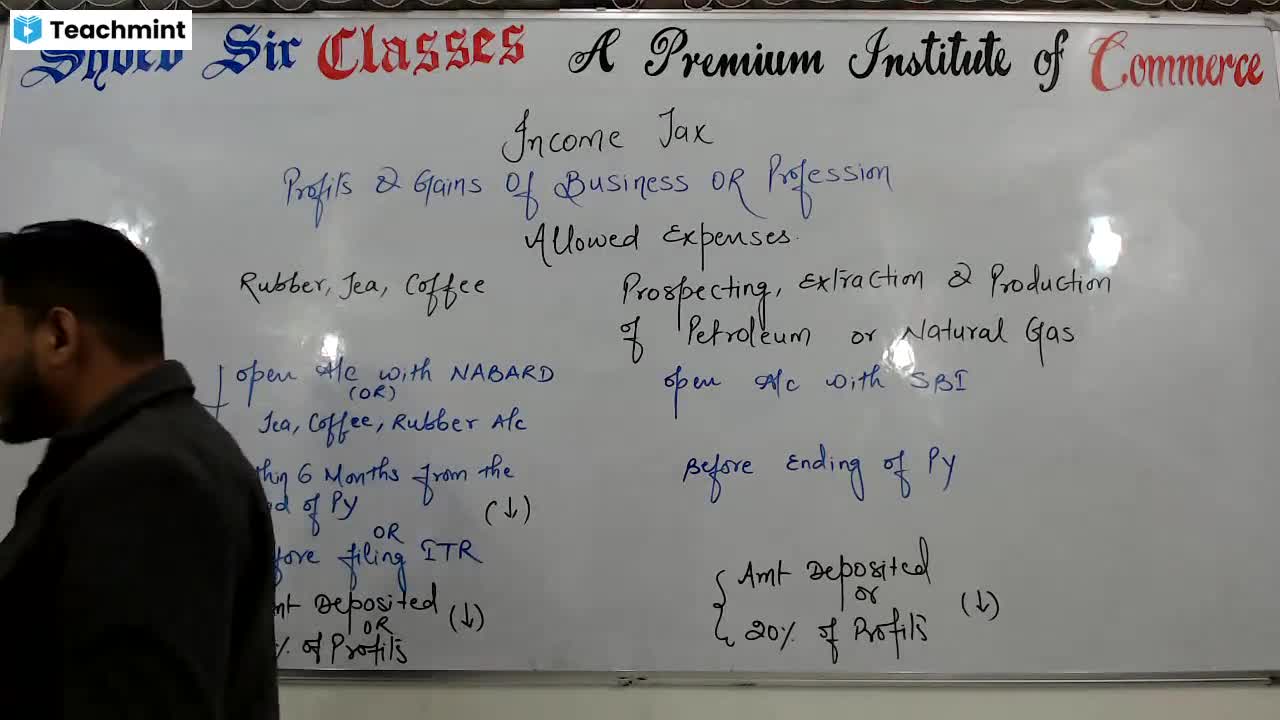 Teachmint
Sir Classes A Premium Institute of Commerce
Income Tax
Profits & Gains Of Business OR Profession
Allowed Expenses.
Rubber, Tea, Coffee
Prospecting, Extraction & Production
of Petroleum or Natural Gas
open A/c with NABARD
(OR)
Tea, Coffee, Rubber A/c
6 Months from the
of PY
(↓)
OR
filing ITR
Deposited
OR
(↓)
% of Profits
open A/c with SBI
Before Ending of PY
Amt Deposited
or
20% of Profits
(↓)